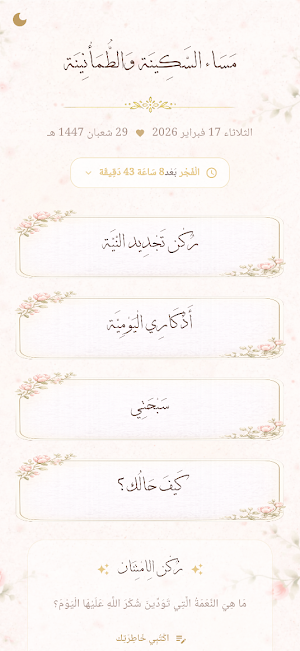 مَسَاء السَّكِينَة وَالطُّمَأْنِينَة
الثلاثاء 17 فبراير 2026 29 شعبان 1447 هـ
الْفَجْر بَعْد 8 سَاعَة 43 دَقِيقَة
رُكن تَجْدِيد النيَّة
أَذْكَارِي الْيَوْمِيَّة
سَبْحَتِي
كَيْفَ حَالُك؟
رُكن الِامْتِنَان
مَا هِيَ النِّعْمَةُ الَّتِي تَوَدِّينَ شُكْرَ اللَّهِ عَلَيْهَا الْيَوْمَ؟
اكْتُبِي خَاطِرَتِك